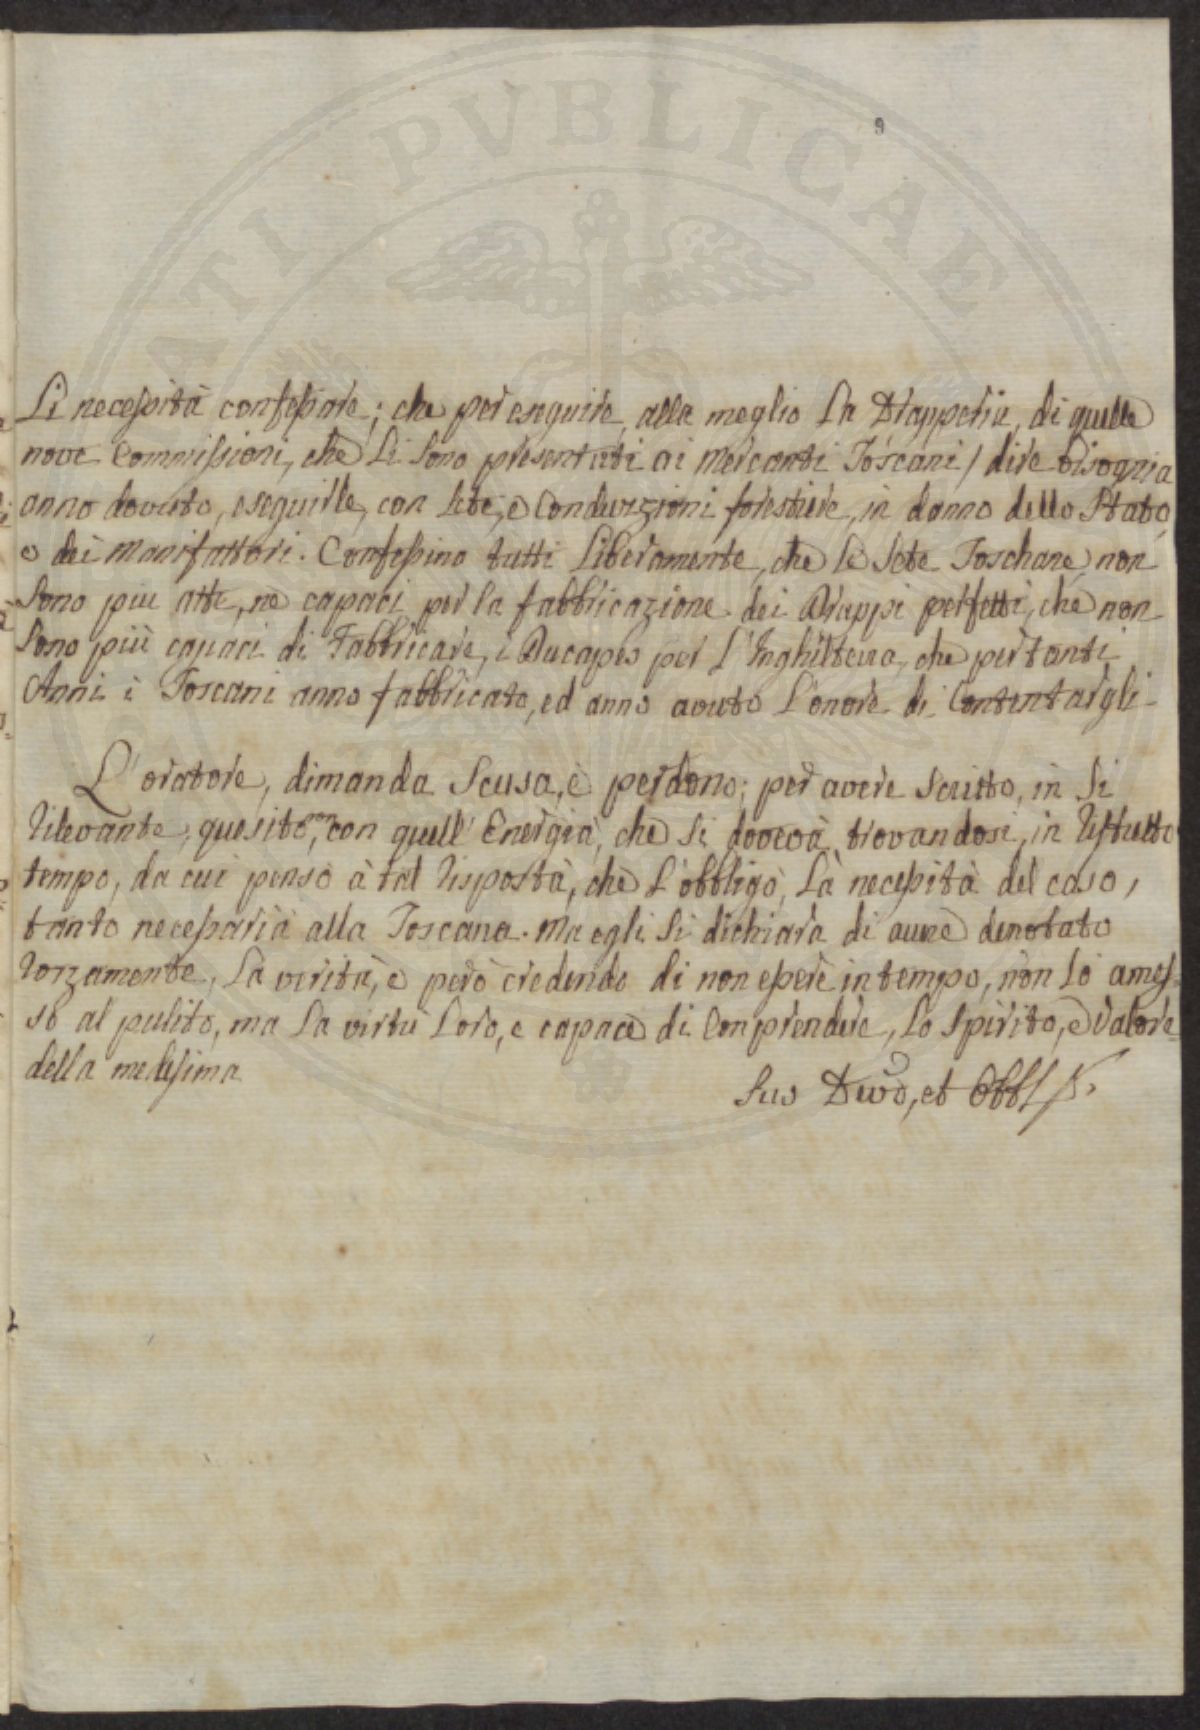 PVBLICAE
9
Li necessità confessare; che per eseguire, alla meglio La Drapperia, di quelle
nove Commissioni, che Li Sono presentati ai Mercanti Toscani / dire bisognia
anno dovuto, eseguirle, con Sete, e Conduizzioni forestiere, in danno dello Stato,
e dei Manifattori. Confessino tutti Liberamente, che Le Sete Toschane, non
Sono più atte, nè capaci per la fabbricazione dei Drappi perfetti, che non
Sono più capaci di Fabbricare, i Ducapes per L'Inghilterra, che per tanti
Anni i Toscani anno fabbricato, ed anno avuto L'onore di Contentargli.
L'oratore, dimanda Scusa, è perdono; per avere Scritto, in Si
rilevante, quesito, non con quell' Energia, che Si doveva, trovandosi, in ristretto
tempo, da cui pensò à tal risposta, che L'obbligò, La necessità del caso,
tanto necessaria alla Toscana. Ma egli Si dichiara di avere denotato
rozzamente, La verità, e però credendo di non essere in tempo, non Lò ames-
so al pulito, ma La virtù Loro, e capace di Conprendere, Lo Spirito, e valore
della medesima
Suo Devo, et Obbl